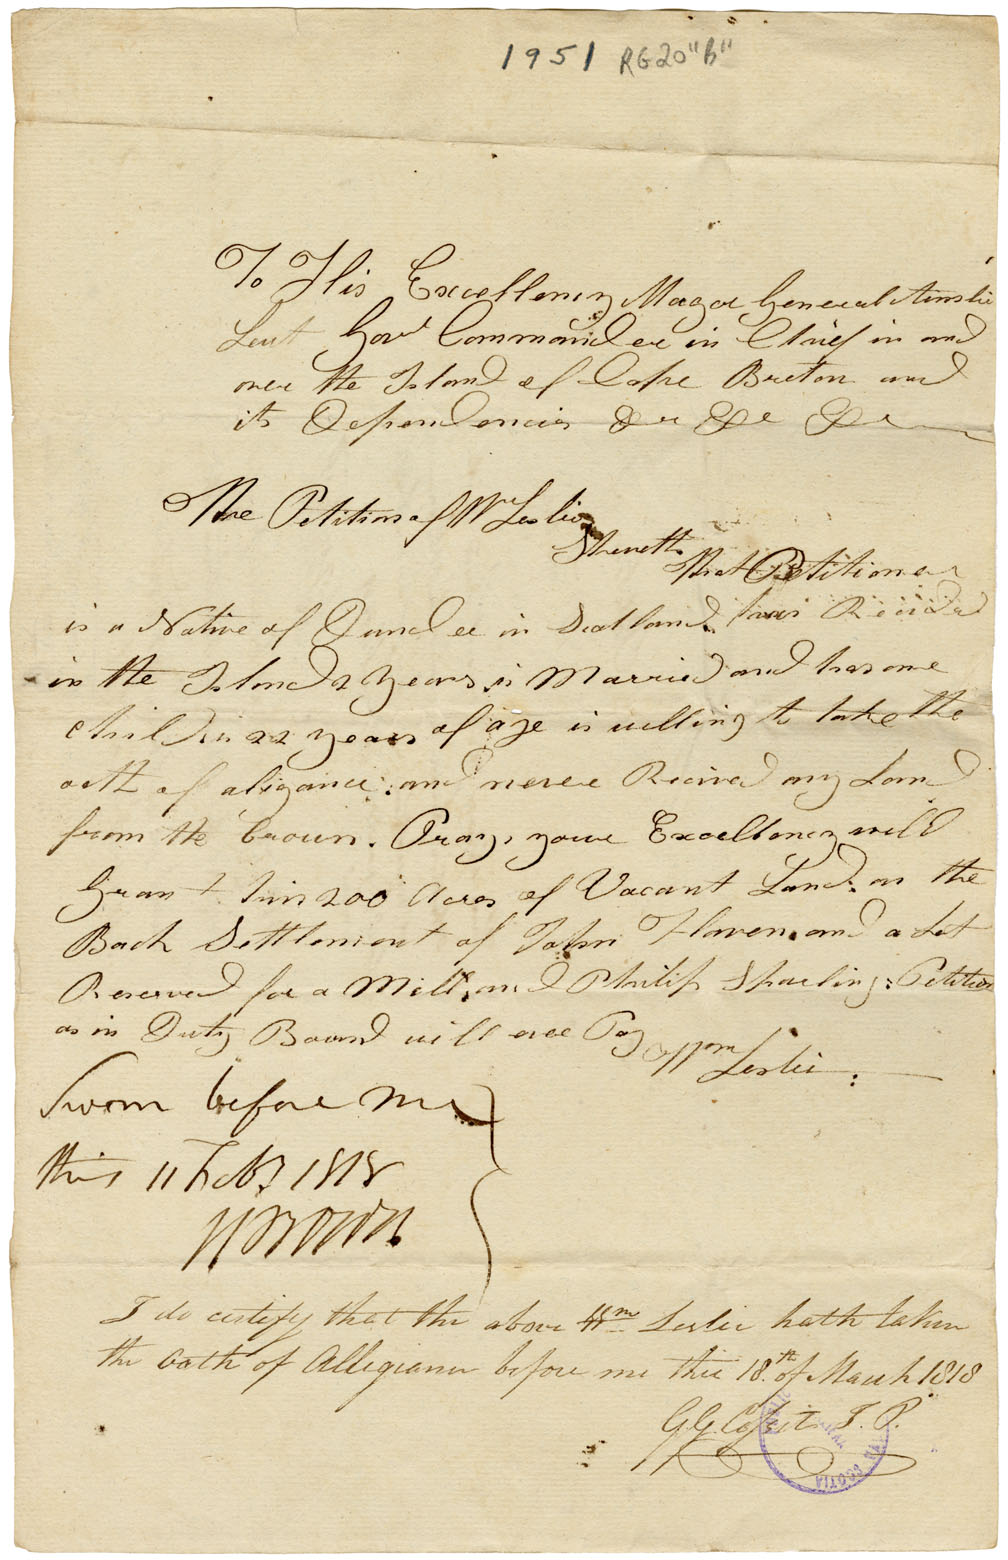 1951 RG20 "B"
To His Excellency Mager General Ainslie
Leut Govr Commander in Chief in and
over the Island of Cape Breton and
its Dependencies &c &c &c
The Petition of Wm Leslie
Sheweth
That Petitioner
is a Native of Dundee in Scotland, has Recided
in the Island 2 years, is Married and has one
child is 22 years of age is willing to take the
oath of aligance: and never Recived any Land
from the Crown. Prays your Excellency will
Grant him 200 Acres of Vacant Land: on the
Back Settlement of John Flaven, and a Lot
Reserved for a Mill, and Philip Sparling: Petition
as in Duty Bound will ever Pay
Wm Leslie:
Sworn before me
this 11 Feby 1818
I do certify that the above Wm Leslie hath taken
the oath of Allegiance before me this 18th of March 1818
J. P.
SCOTIA